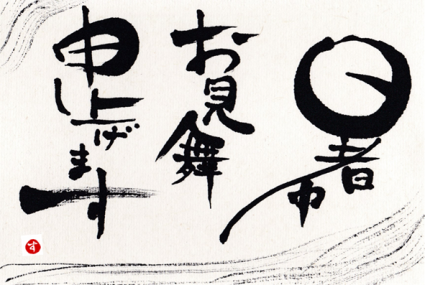 暑中
お見舞
申し上げます
す